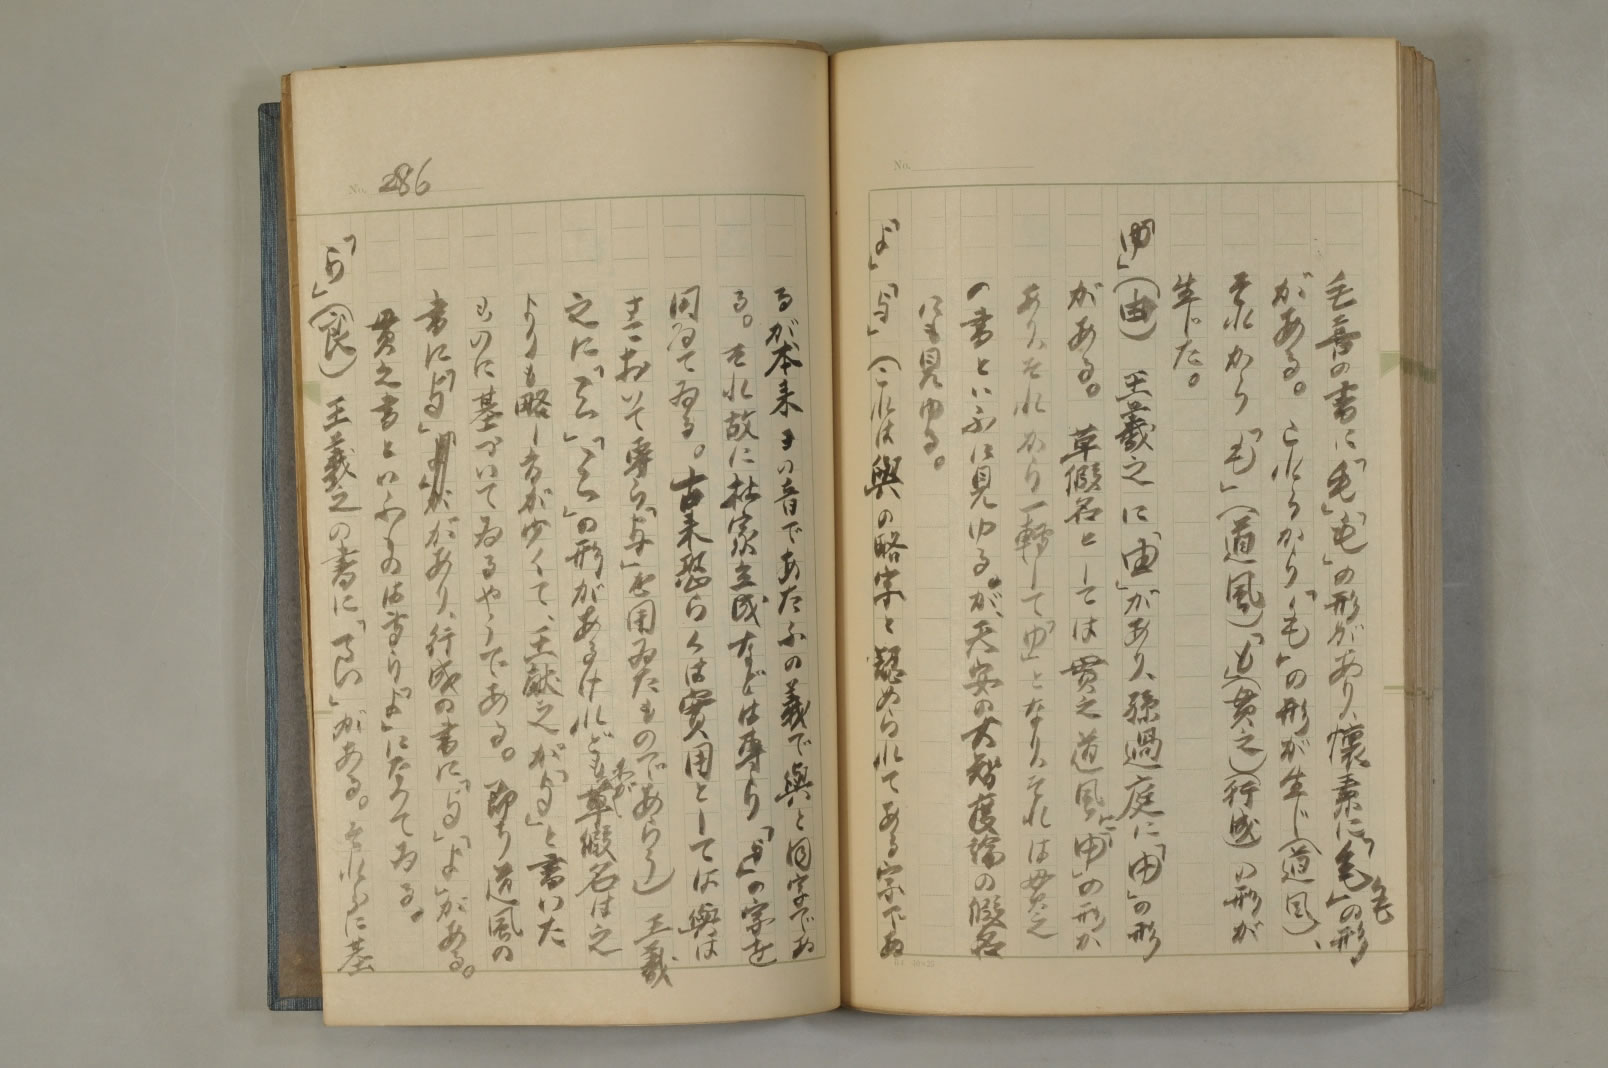 No.
毛喜の書に「毛」「も」の形があり、懐素に「毛」の形
がある。これらから「も」の形が生じ(道風)、
それから「も」(道風)「も」(貫之)(行成)の形が
生じた。
「ゆ」(由) 王羲之に「由」があり、孫過庭に「由」の形
がある。草假名としては貫之道風に「由」の形が
ありそれから一轉して「ゆ」となりそれは貫之
の書といふに見ゆるが、天安の大智度論の假名
にも見ゆる。
「よ」「与」(これは與の略字と認められてある字でゐ
No. 286
るが本来ヨの音であたふの義で與と同字でゐ
る。それ故に杜家立成などは専ら「与」の字を
用ゐてゐる。古来恐らくは實用としては與は
すておいて専ら「与」を用ゐたものであらう) 王羲
之に「与」「与」の形があるけれどもわが草假名は之
よりも略し方が少くて、王献之が「与」と書いた
ものに基づいてゐるやうである。即ち道風の
書に「与」があり、行成の書に「与」「よ」がある。
貫之書といふのは専ら「よ」になつてゐる。
「ら」(良) 王羲之の書に「良」がある。それらに基